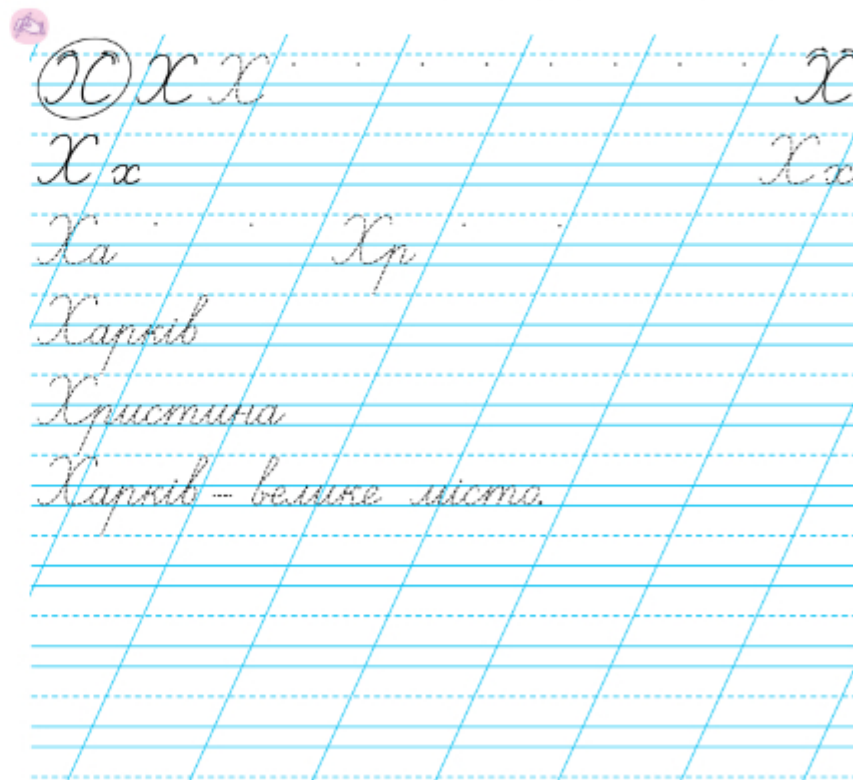 Х Х Х Х
Х х Х х
Ха Хр
Харків
Христина
Харків – велике місто.